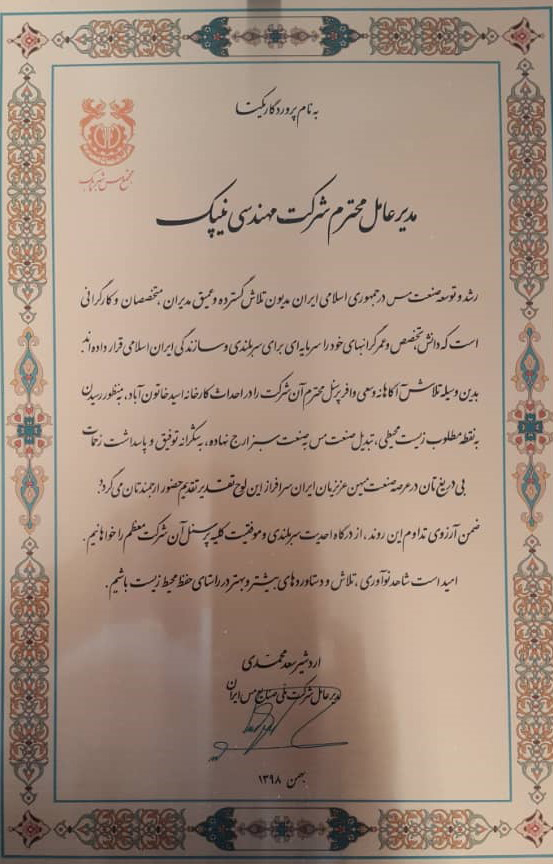 به نام پروردگار یکتا
مجتمع مس شهربابک
مدیرعامل محترم شرکت مهندسی نیپک
رشد و توسعه صنعت مس در جمهوری اسلامی ایران مدیون تلاش گسترده و عمیق مدیران، متخصصان و کارگرانی
است که دانش، تخصص و عمر گرانبهای خود را سرمایه‌ای برای سربلندی و سازندگی ایران اسلامی قرار داده‌اند.
بدین وسیله تلاش آگاهانه و سعی وافر پرسنل محترم آن شرکت را در احداث کارخانه اسید خاتون‌آباد، بمنظور رسیدن
به نقطه مطلوب زیست محیطی، تبدیل صنعت مس به صنعت سبز ارج نهاده، به شکرانه توفیق و پاسداشت زحمات
بی دریغ‌تان در عرصه صنعت میهن عزیزمان ایران سرافراز این لوح تقدیر تقدیم حضور ارجمندتان می‌گردد.
ضمن آرزوی تداوم این روند، از درگاه احدیت سربلندی و موفقیت کلیه پرسنل آن شرکت معظم را خواهانیم.
امید است شاهد نوآوری، تلاش و دستاوردهای بیشتر و بهتر در راستای حفظ محیط زیست باشیم.
اردشیر سعدمحمدی
مدیرعامل شرکت ملی صنایع مس ایران
بهمن ۱۳۹۸